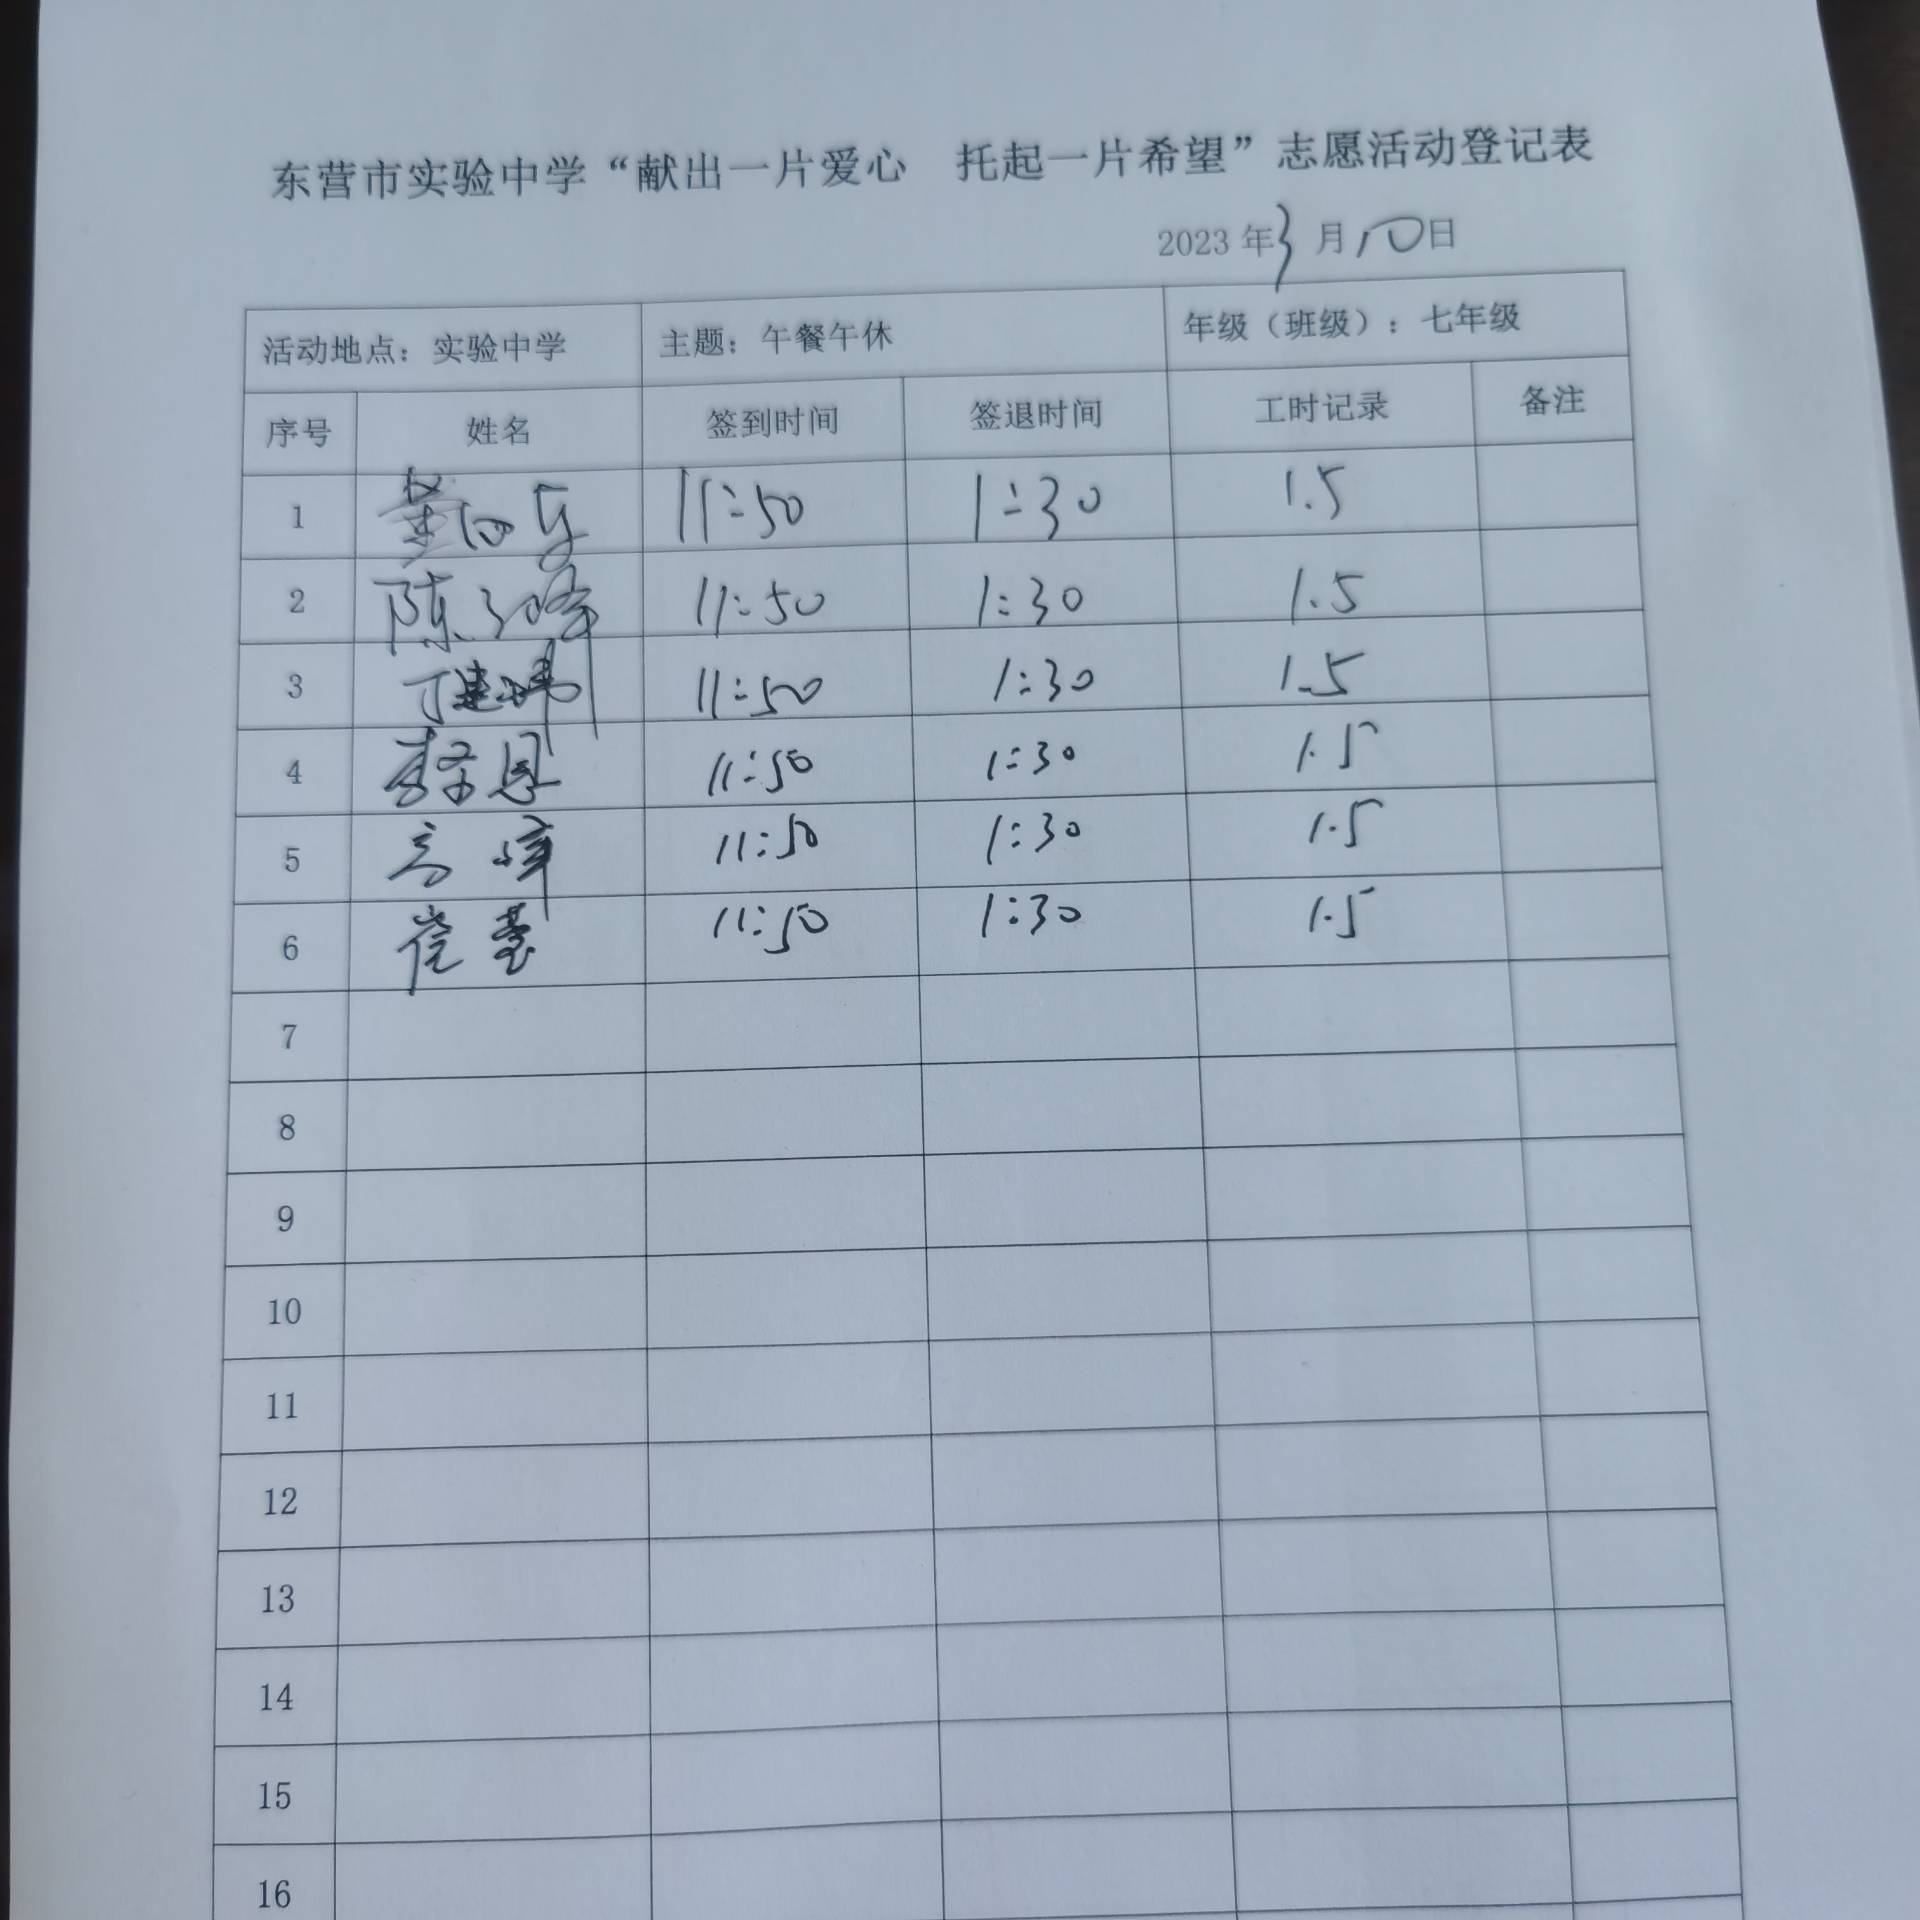 东营市实验中学“献出一片爱心 托起一片希望”志愿活动登记表
2023 年 3 月 10 日
活动地点：实验中学 主题：午餐午休 年级（班级）：七年级
序号 姓名 签到时间 签退时间 工时记录 备注
1 11:50 1:30 1.5
2 陈 11:50 1:30 1.5
3 丁建玮 11:50 1:30 1.5
4 11:50 1:30 1.5
5 高峰 11:50 1:30 1.5
6 11:50 1:30 1.5
7
8
9
10
11
12
13
14
15
16